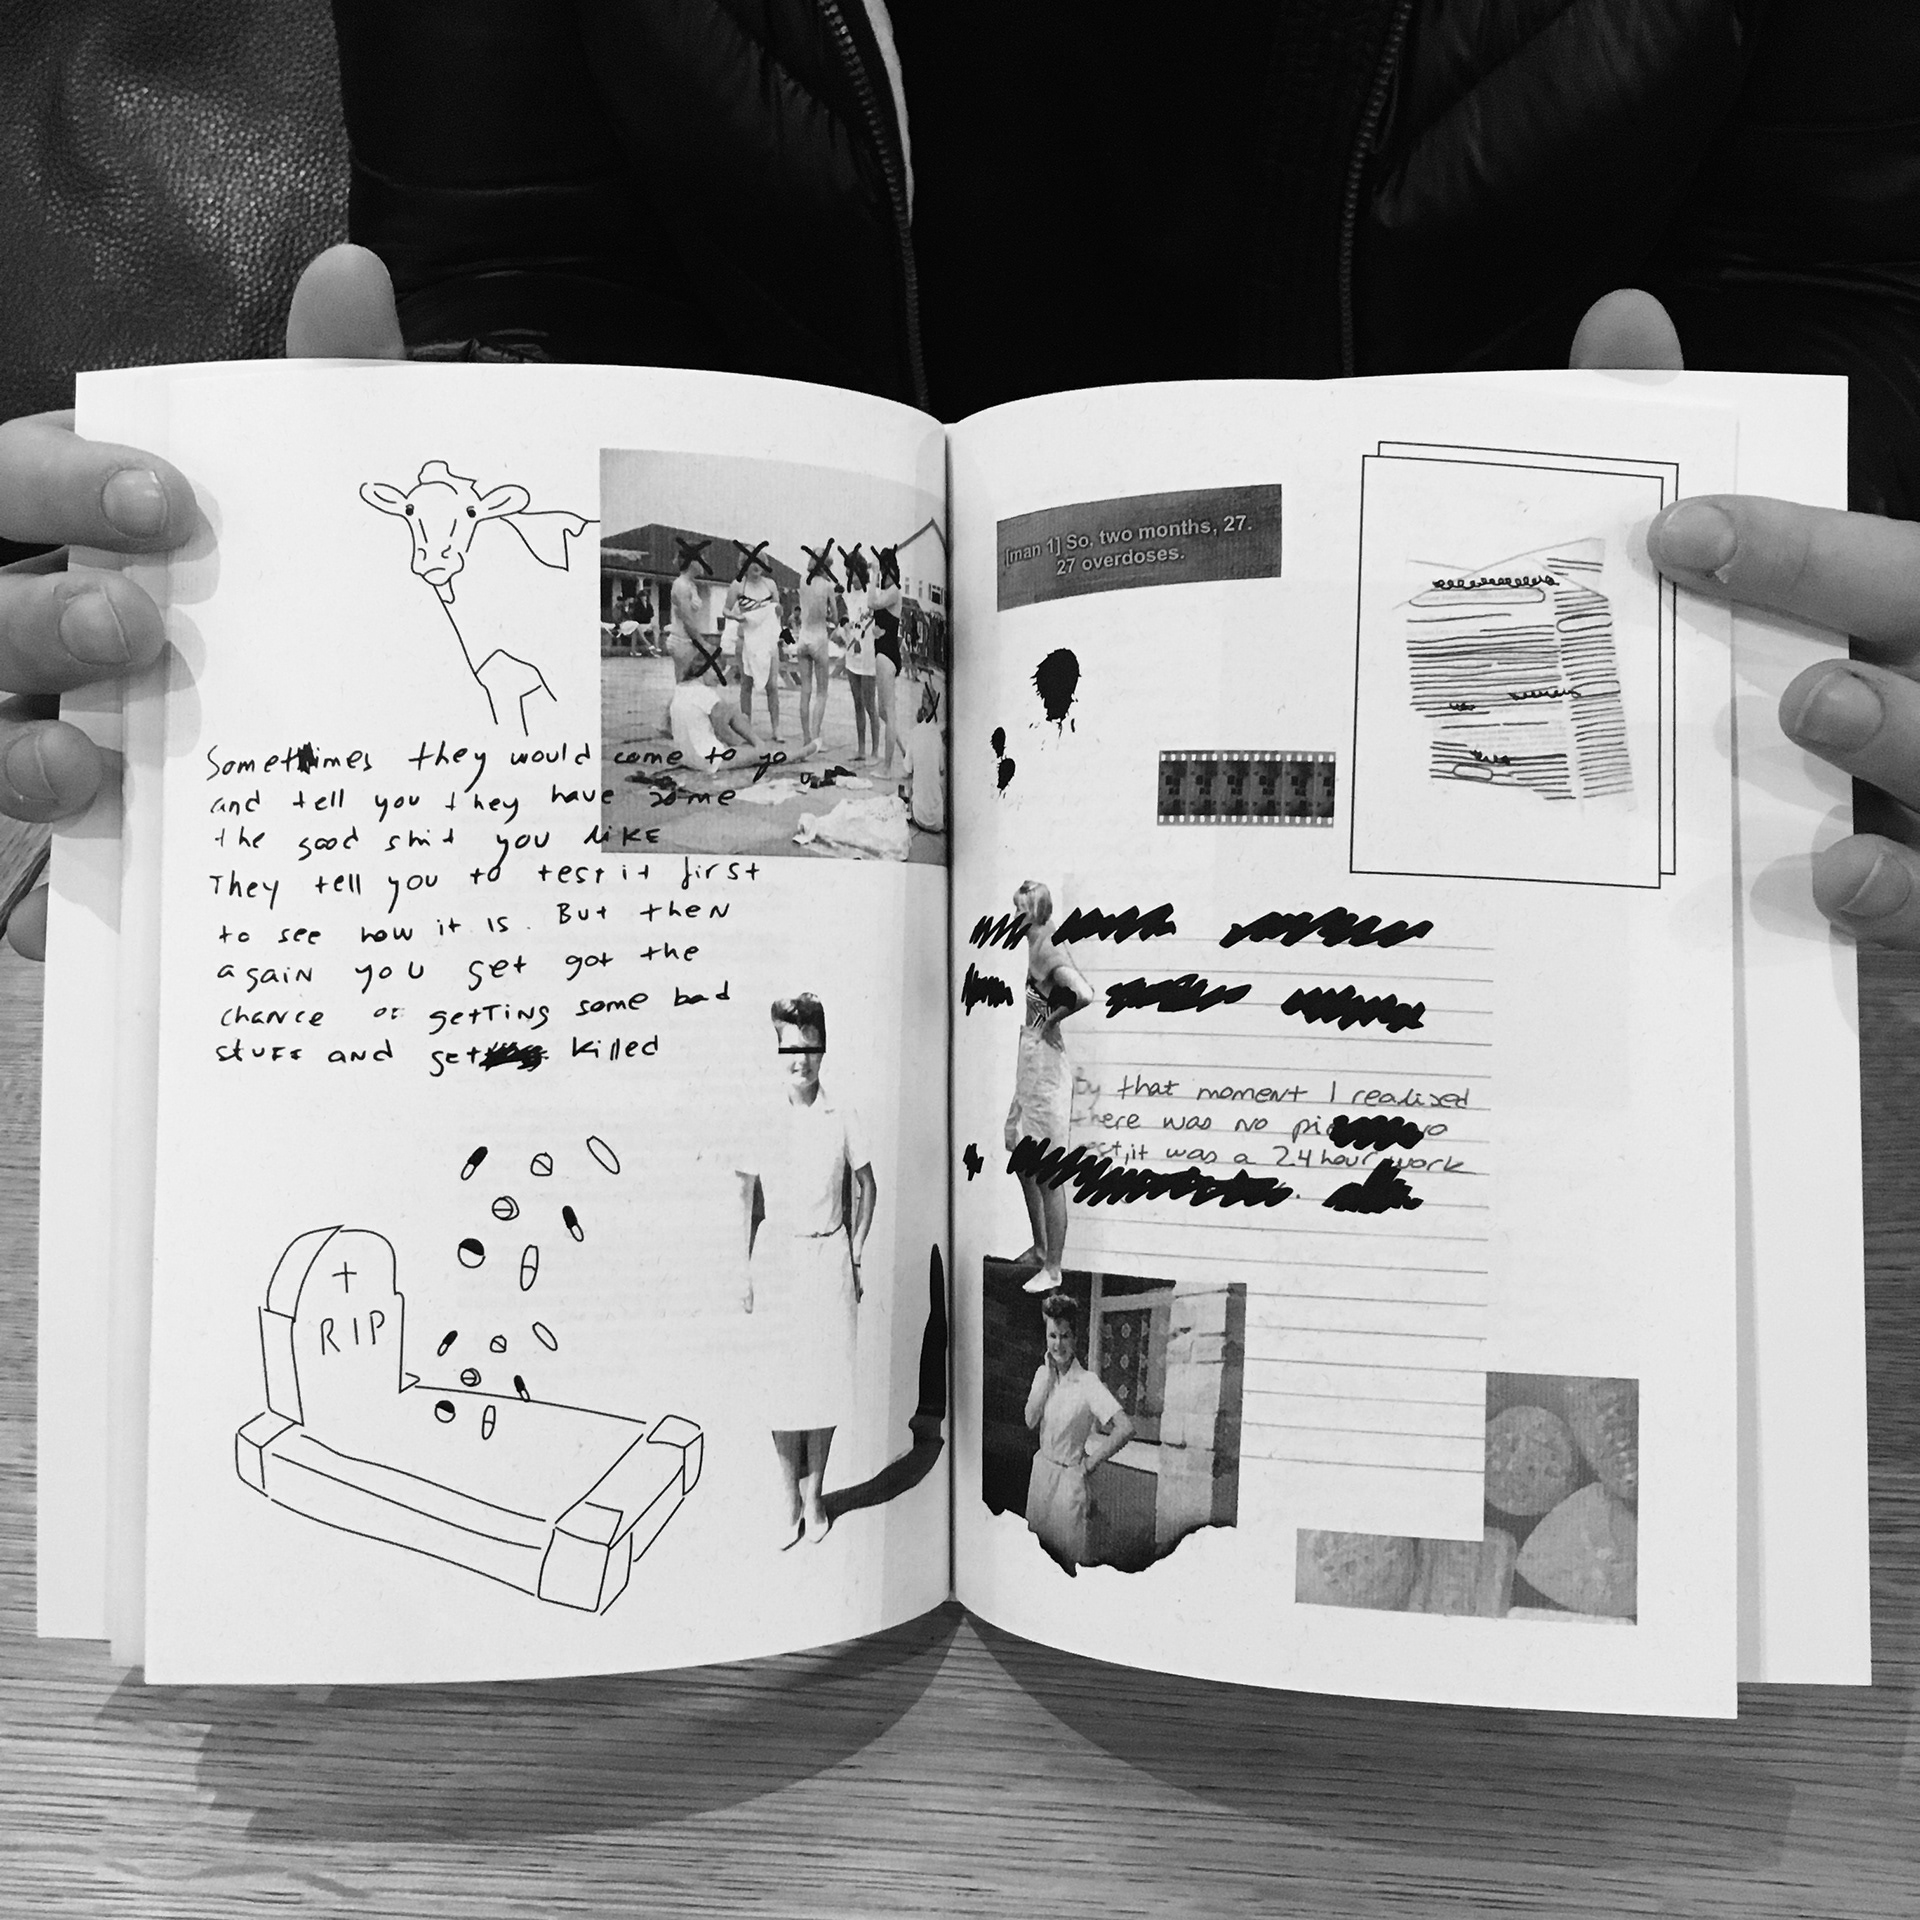 Sometimes they would come to yo
and tell you they have some
the good shit you like
They tell you to test it first
to see how it is. But then
again you get got the
chance of getting some bad
stuff and get killed
RIP
[man 1] So, two months, 27.
27 overdoses.
By that moment I realised
there was no
it was a 24 hour work